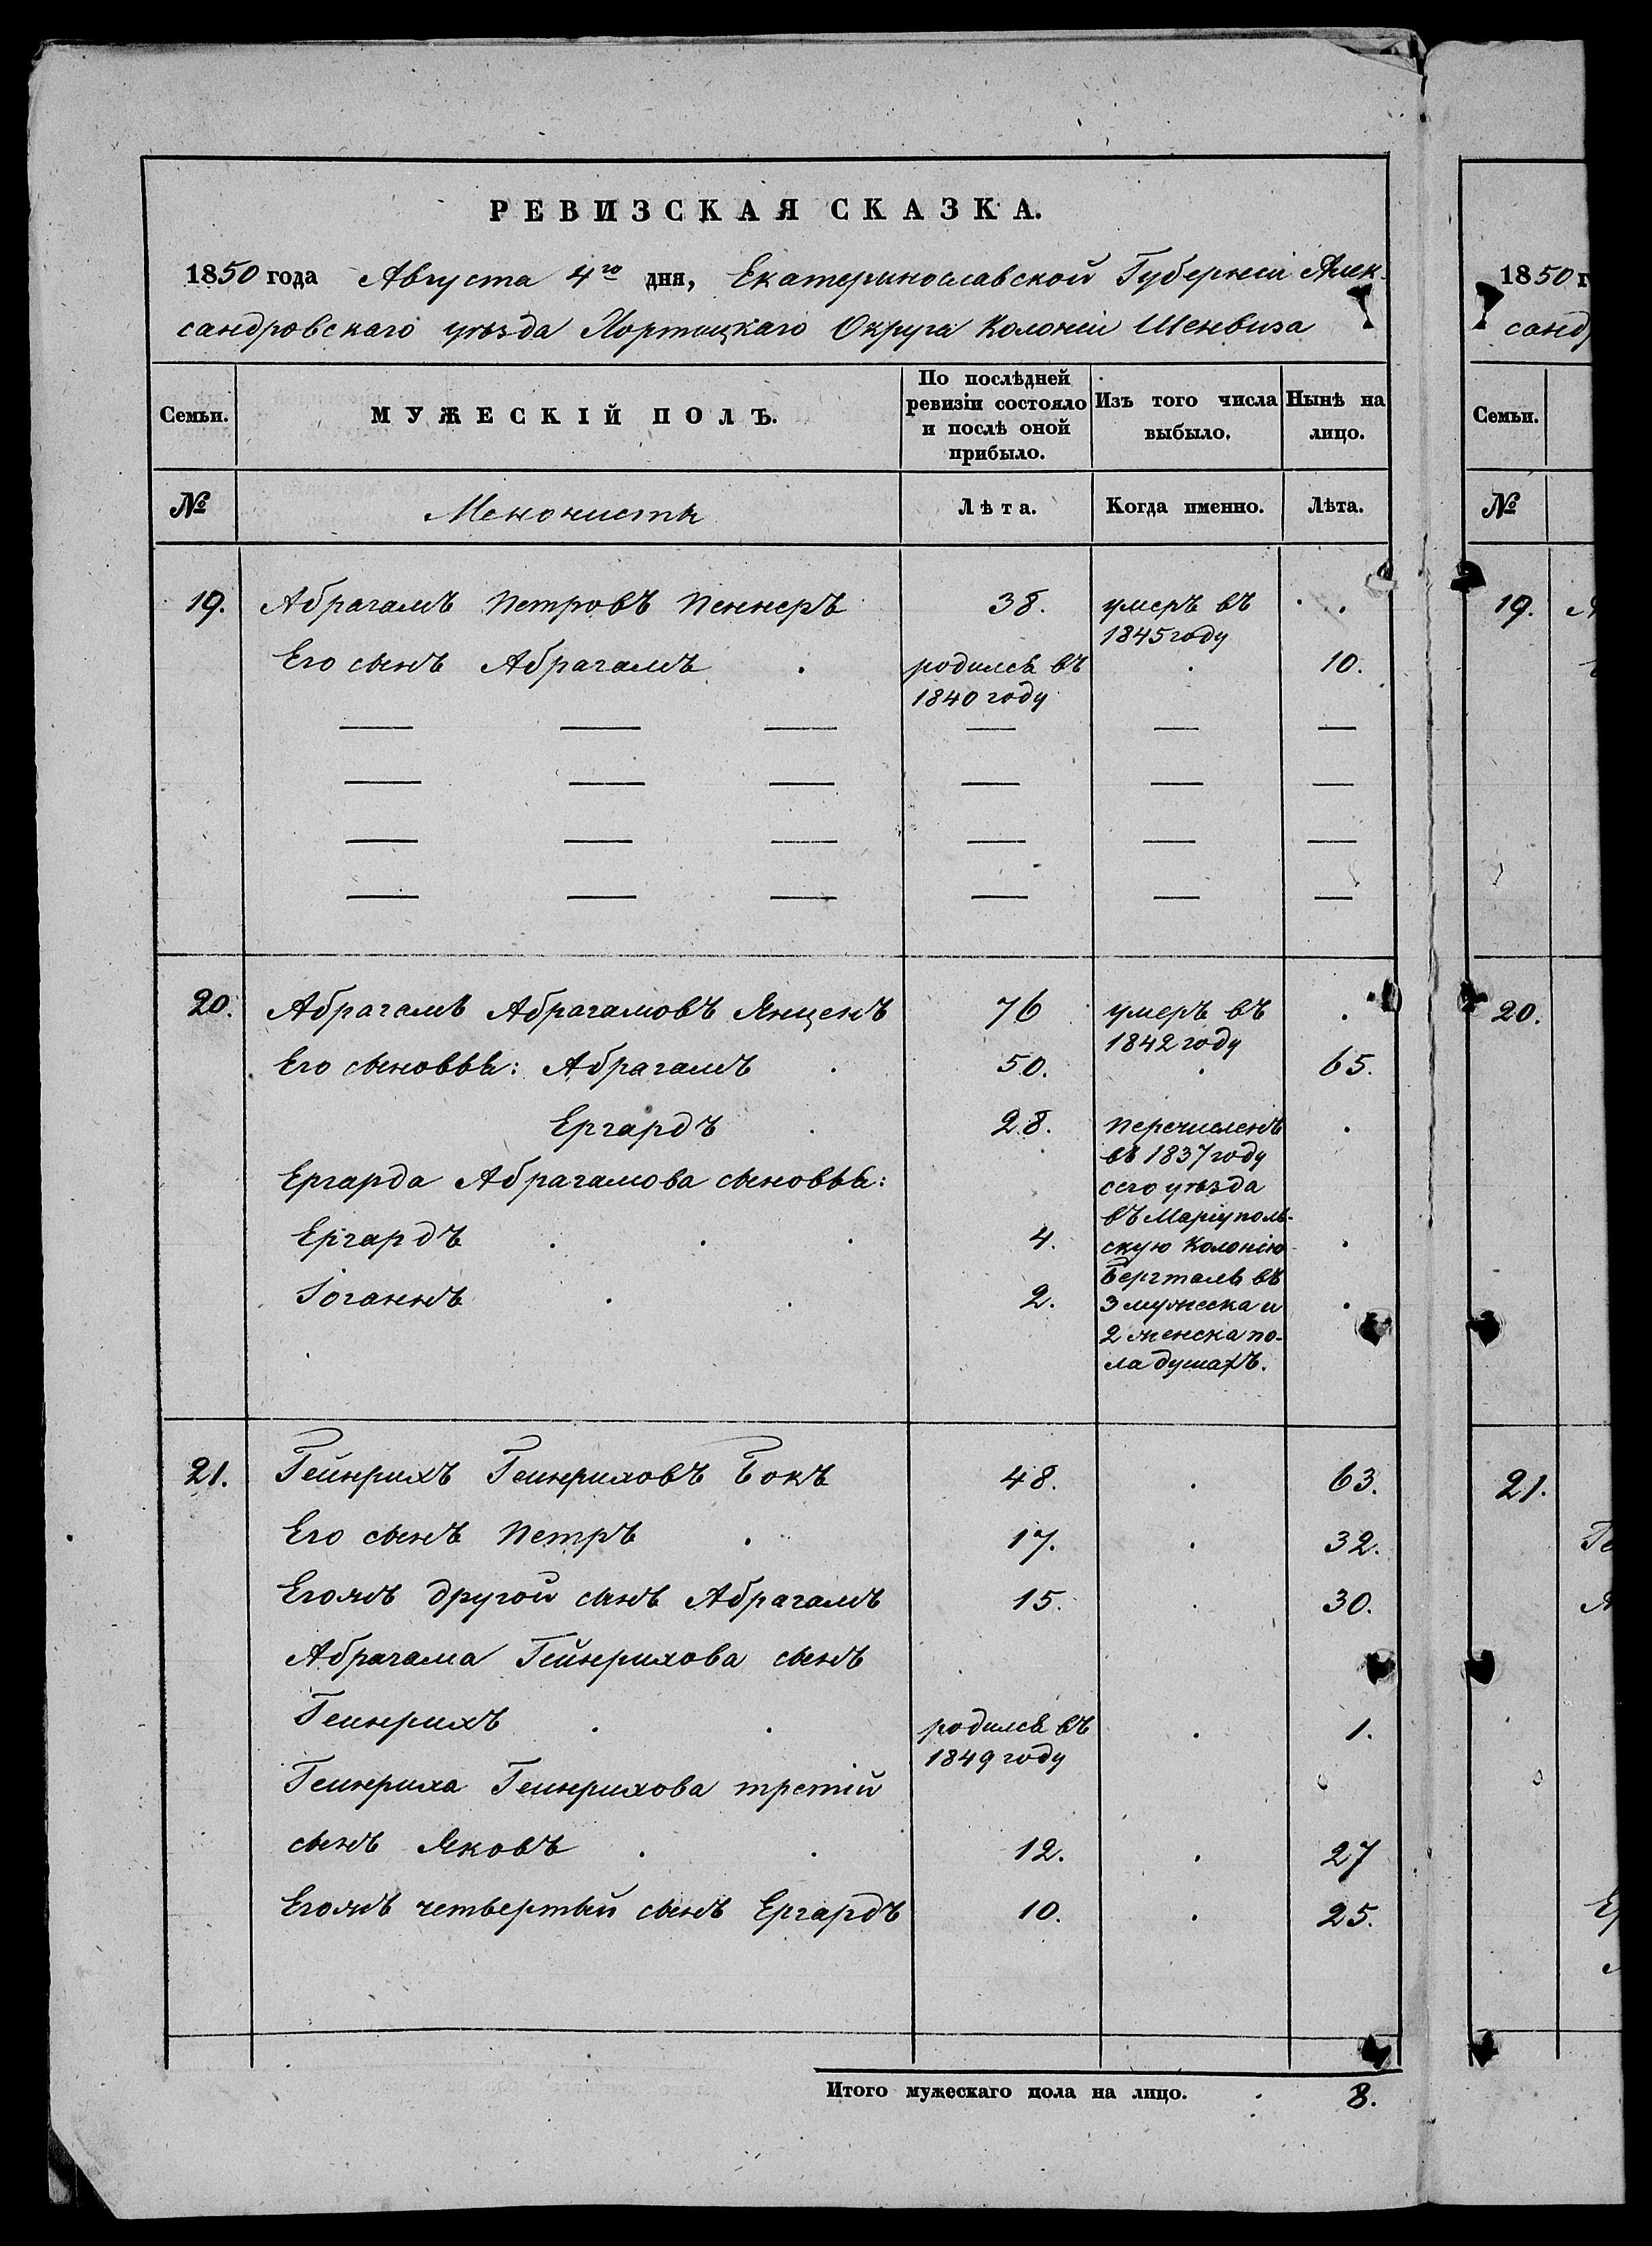 РЕВИЗСКАЯ СКАЗКА.
1850 года Августа 4го дня, Екатеринославской Губерніи Алек-
сандровскаго уѣзда Хортицкаго Округа Колоніи Шенвиза
Семьи. МУЖЕСКІЙ ПОЛЪ. По послѣдней ревизіи состояло и послѣ оной прибыло. Изъ того числа выбыло. Нынѣ на лицо.
№ Менонисты Лѣта. Когда именно. Лѣта.
19. Абрагамъ Петровъ Пеннеръ 38. умеръ въ 1845 году
Его сынъ Абрагамъ родился въ 1840 году 10.
20. Абрагамъ Абрагамовъ Янценъ 76 умеръ въ 1842 году
Его сыновья: Абрагамъ 50. 65.
Ергардъ 28. перечисленъ
въ 1837 году
Ергарда Абрагамова сыновья: сего уѣзда
въ Маріуполь-
Ергардъ 4. скую Колонію
Бергталь въ
Іоганнъ 2. 3 мужеска и
2 женска по-
ла душахъ.
21. Гейнрихъ Гейнриховъ Бокъ 48. 63.
Его сынъ Петръ 17. 32.
Егожъ другой сынъ Абрагамъ 15. 30.
Абрагама Гейнрихова сынъ
Гейнрихъ родился въ 1849 году 1.
Гейнриха Гейнрихова третій
сынъ Яковъ 12. 27
Егожъ четвертый сынъ Ергардъ 10. 25.
Итого мужескаго пола на лицо. 8.
1850 г
санд
Семьи.
№
19.
20.
21.